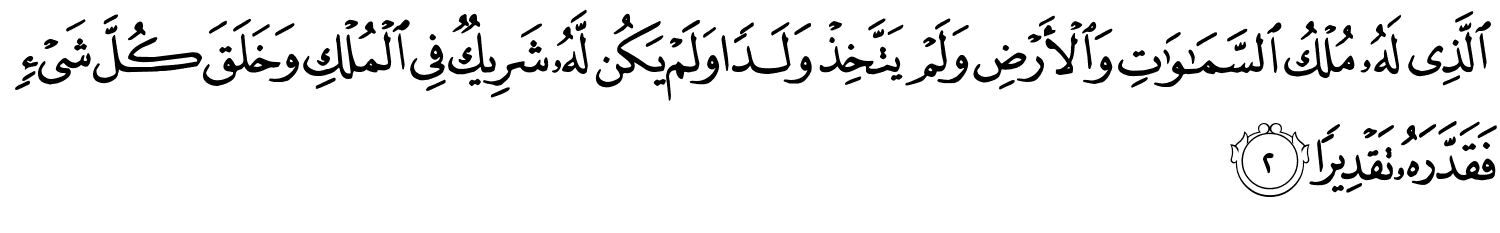 ٱلَّذِى لَهُۥ مُلْكُ ٱلسَّمَـٰوَٰتِ وَٱلْأَرْضِ وَلَمْ يَتَّخِذْ وَلَدًا وَلَمْ يَكُن لَّهُۥ شَرِيكٌ فِى ٱلْمُلْكِ وَخَلَقَ كُلَّ شَىْءٍ
فَقَدَّرَهُۥ تَقْدِيرًا ٢